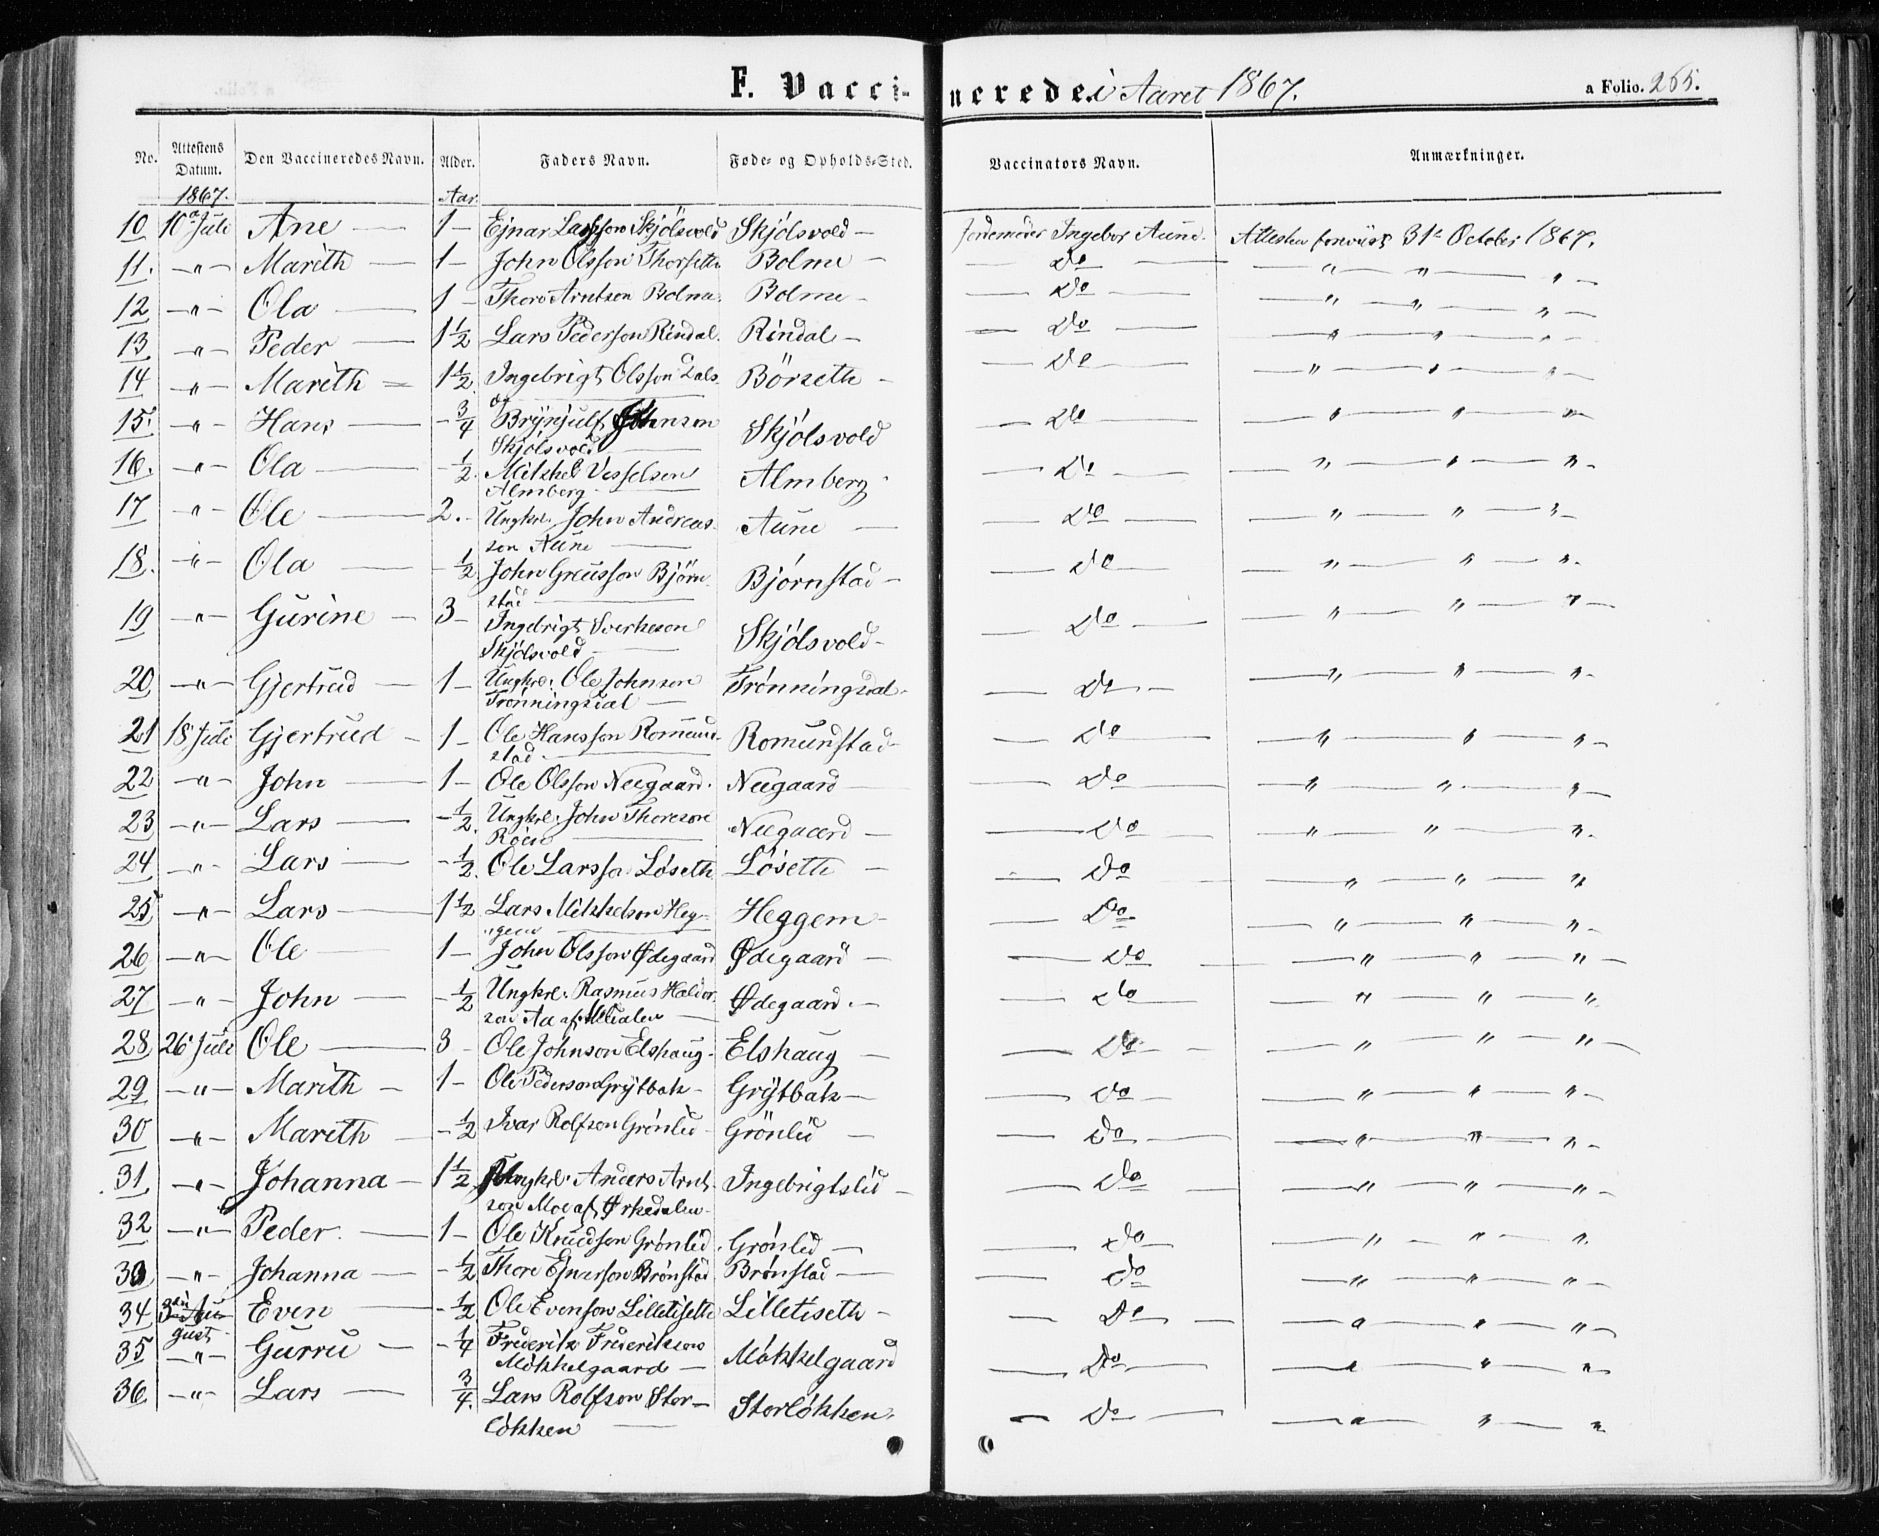 F. Vaccinerede i Aaret 1867. a Folio. 265.
No. Attestens Datum. Den Vaccineredes Navn. Alder. Faders Navn. Føde- og Opholds-Sted. Vaccinators Navn. Anmærkninger.
1867. Aar.
10 10 Juli Ane — 1 — Ejnar Larsson Skjölsvold Skjölsvold — Jordemoder Ingebor Aune. Attesten forevist 31te October 1867.
11. — " — Marith — 1 — John Olsson Thorseth Bolme — Do — " — " — " —
12 — " — Ola — 1 — Thore Arntson Bolme. Bolme — Do — " — " — " —
13 — " — Peder — 1½ Lars Pederson Rindal. Rindal — Do — " — " — " —
14 — " — Marith — 1½ Ingebrigt Olsson Börseth — Do — " — " — " —
15. — " — Hans — ¾ Brynjulf Johnson
Skjölsvold — Skjölsvold — Do — " — " — " —
16. — " — Ola — ½ Mikkel Vesselson
Almberg — Almberg. — Do — " — " — " —
17 — " — Ole — 2. Ungkrl. John Andreas-
son Aune — Aune — Do — " — " — " —
18. — " — Ola — ½ John Greusson Björn-
stad — Bjørnstad — Do — " — " — " —
19 — " — Gurine — 3 — Ingebrigt Sverkeson
Skjölsvold — Skjölsvold — Do — " — " — " —
20 — " — Gjertrud — 1 — Ungkrl. Ole Johnson
Trønningsdal — Trønningsdal. — Do — " — " — " —
21 18 Juli Gjertrud — 1 — Ole Hansson Romund-
stad — Romundstad — Do — " — " — " —
22 — " — John — 1 — Ole Olsson Neegaard. Neegaard — Do — " — " — " —
23 — " — Lars — ½ Ungkrl. John Thoreson
Röen — Neegaard — Do — " — " — " —
24 — " — Lars — ½ Ole Larsson Løseth Løseth — Do — " — " — " —
25 — " — Lars — 1½ Lars Mikkelson Heg-
gem — Heggem — Do — " — " — " —
26 — " — Ole — 1 — John Olsson Ødegaard Ødegaard — Do — " — " — " —
27 — " — John — ½ Ungkrl. Rasmus Haldor-
son Aa af Meldalen — Ødegaard. — Do — " — " — "
28 26 Juli Ole — 3 — Ole Johnson Elshaug. Elshaug — Do — " — " — " —
29 — " — Marith — 1 — Ole Pederson Grytbak — Grytbak — Do — " — " — " —
30 — " — Marith — ½ Ivar Rolfson Grönlid Grönlid — Do — " — " — " —
31 — " — Johanna — 1½ Ungkrl. Anders Arnt-
son Moe af Ørkedalen — Ingebrigtslid — Do — " — " — " —
32 — " — Peder. — 1 — Ole Knudson Grønlid. Grønlid — Do — " — " — "
33 — " — Johanna — ½ Thore Ejnarson Brønstad Brønstad — Do — " — " — "
34 3die Au-
gust Even — ½ Ole Evenson Lilletiseth Lilletiseth — Do — " — " — " —
35 — " — Gurru — ¼ Frederik Frederikson
Møkkelgaard — Møkkelgaard — Do — " — " — "
36 — " — Lars — ¾ Lars Rolfson Stor-
løkken — Storløkken. — Do — " — " — "